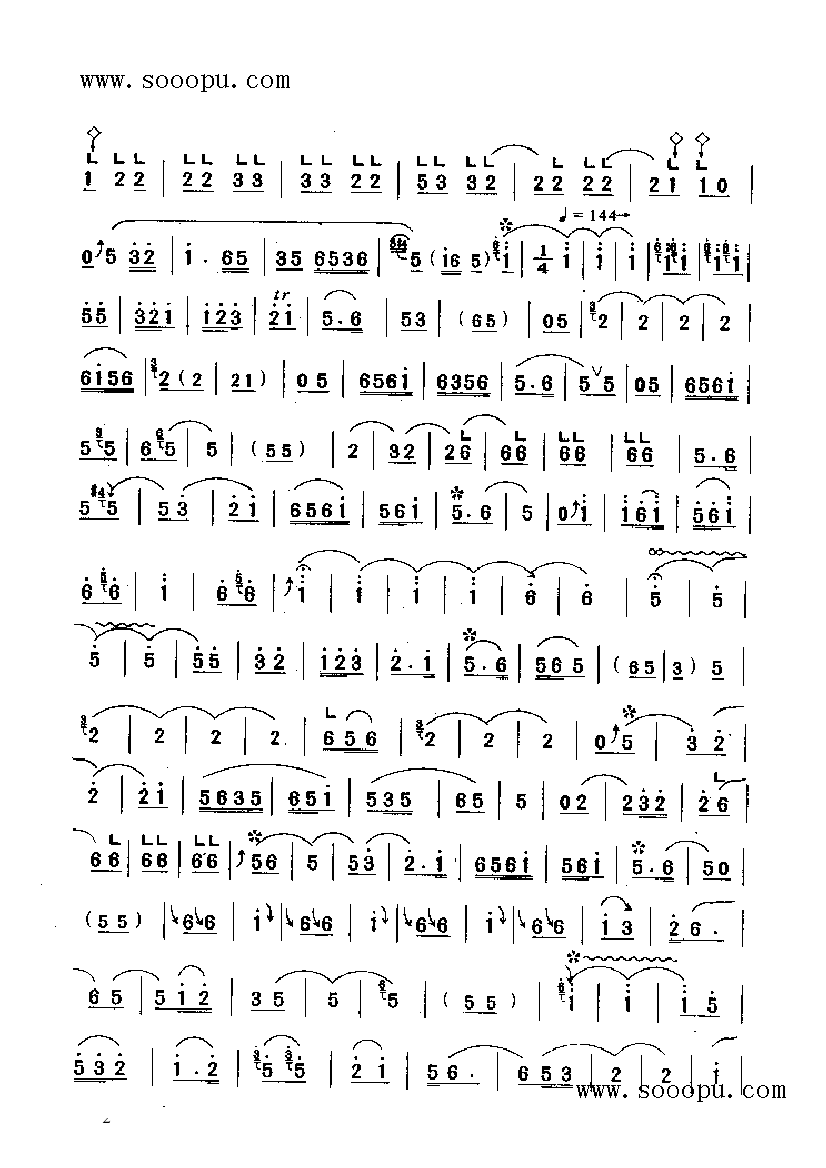 www.sooopu.com
1 2 2 | 2 2 3 3 | 3 3 2 2 | 5 3 3 2 | 2 2 2 2 | 2 1 1 0 |
♩=144
0 5 3 2 | 1 . 6 5 | 3 5 6 5 3 6 | 5 ( i 6 5 ) i | 1/4 i | i | i | i i | i i |
5 5 | 3 2 1 | 1 2 3 | tr 2 1 | 5 . 6 | 5 3 | ( 6 5 ) | 0 5 | 2 | 2 | 2 | 2 |
6 1 5 6 | 2 ( 2 | 2 1 ) | 0 5 | 6 5 6 i | 6 3 5 6 | 5 . 6 | 5 5 | 0 5 | 6 5 6 i |
5 5 | 6 5 | 5 | ( 5 5 ) | 2 | 3 2 | 2 6 | 6 6 | 6 6 | 6 6 | 5 . 6
5 5 | 5 3 | 2 i | 6 5 6 i | 5 6 i | 5 . 6 | 5 | 0 i | i 6 i | 5 6 i |
6 6 | i | 6 6 | i | i | i | i | 6 | 6 | 5 | 5 |
5 | 5 | 5 5 | 3 2 | 1 2 3 | 2 . i | 5 . 6 | 5 6 5 | ( 6 5 | 3 ) | 5
2 | 2 | 2 | 2 | 6 5 6 | 2 | 2 | 2 | 0 5 | 3 2 |
2 | 2 i | 5 6 3 5 | 6 5 i | 5 3 5 | 6 5 | 5 | 0 2 | 2 3 2 | 2 6 |
6 6 | 6 6 | 6 6 | 5 6 | 5 | 5 3 | 2 . i | 6 5 6 i | 5 6 i | 5 . 6 | 5 0
( 5 5 ) | 6 6 | i | 6 6 | i | 6 6 | i | 6 6 | i 3 | 2 6 . |
6 5 | 5 i 2 | 3 5 | 5 | 5 | ( 5 5 ) | i | i | i 5 |
5 3 2 | i . 2 | 5 5 | 2 i | 5 6 . | 6 5 3 | 2 | 2 | i |
www.sooopu.com
2